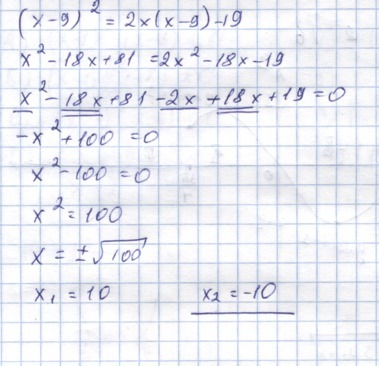 (x-9)² = 2x(x-9)-19
x² - 18x + 81 = 2x² - 18x - 19
x² - 18x + 81 - 2x + 18x + 19 = 0
-x² + 100 = 0
x² - 100 = 0
x² = 100
x = ±√100
x₁ = 10 x₂ = -10